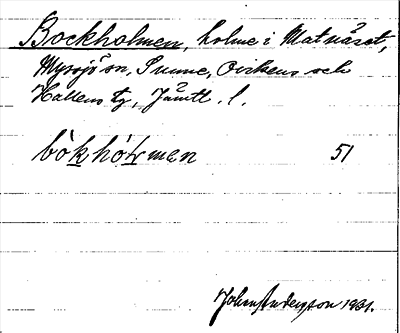 Bockholmen, holme i Matnäset,
Myssjö sn, Sunne, Ovikens och
Hallens tg, Jämtl. l.
bòkhól̥men 51
John Andersson 1931.